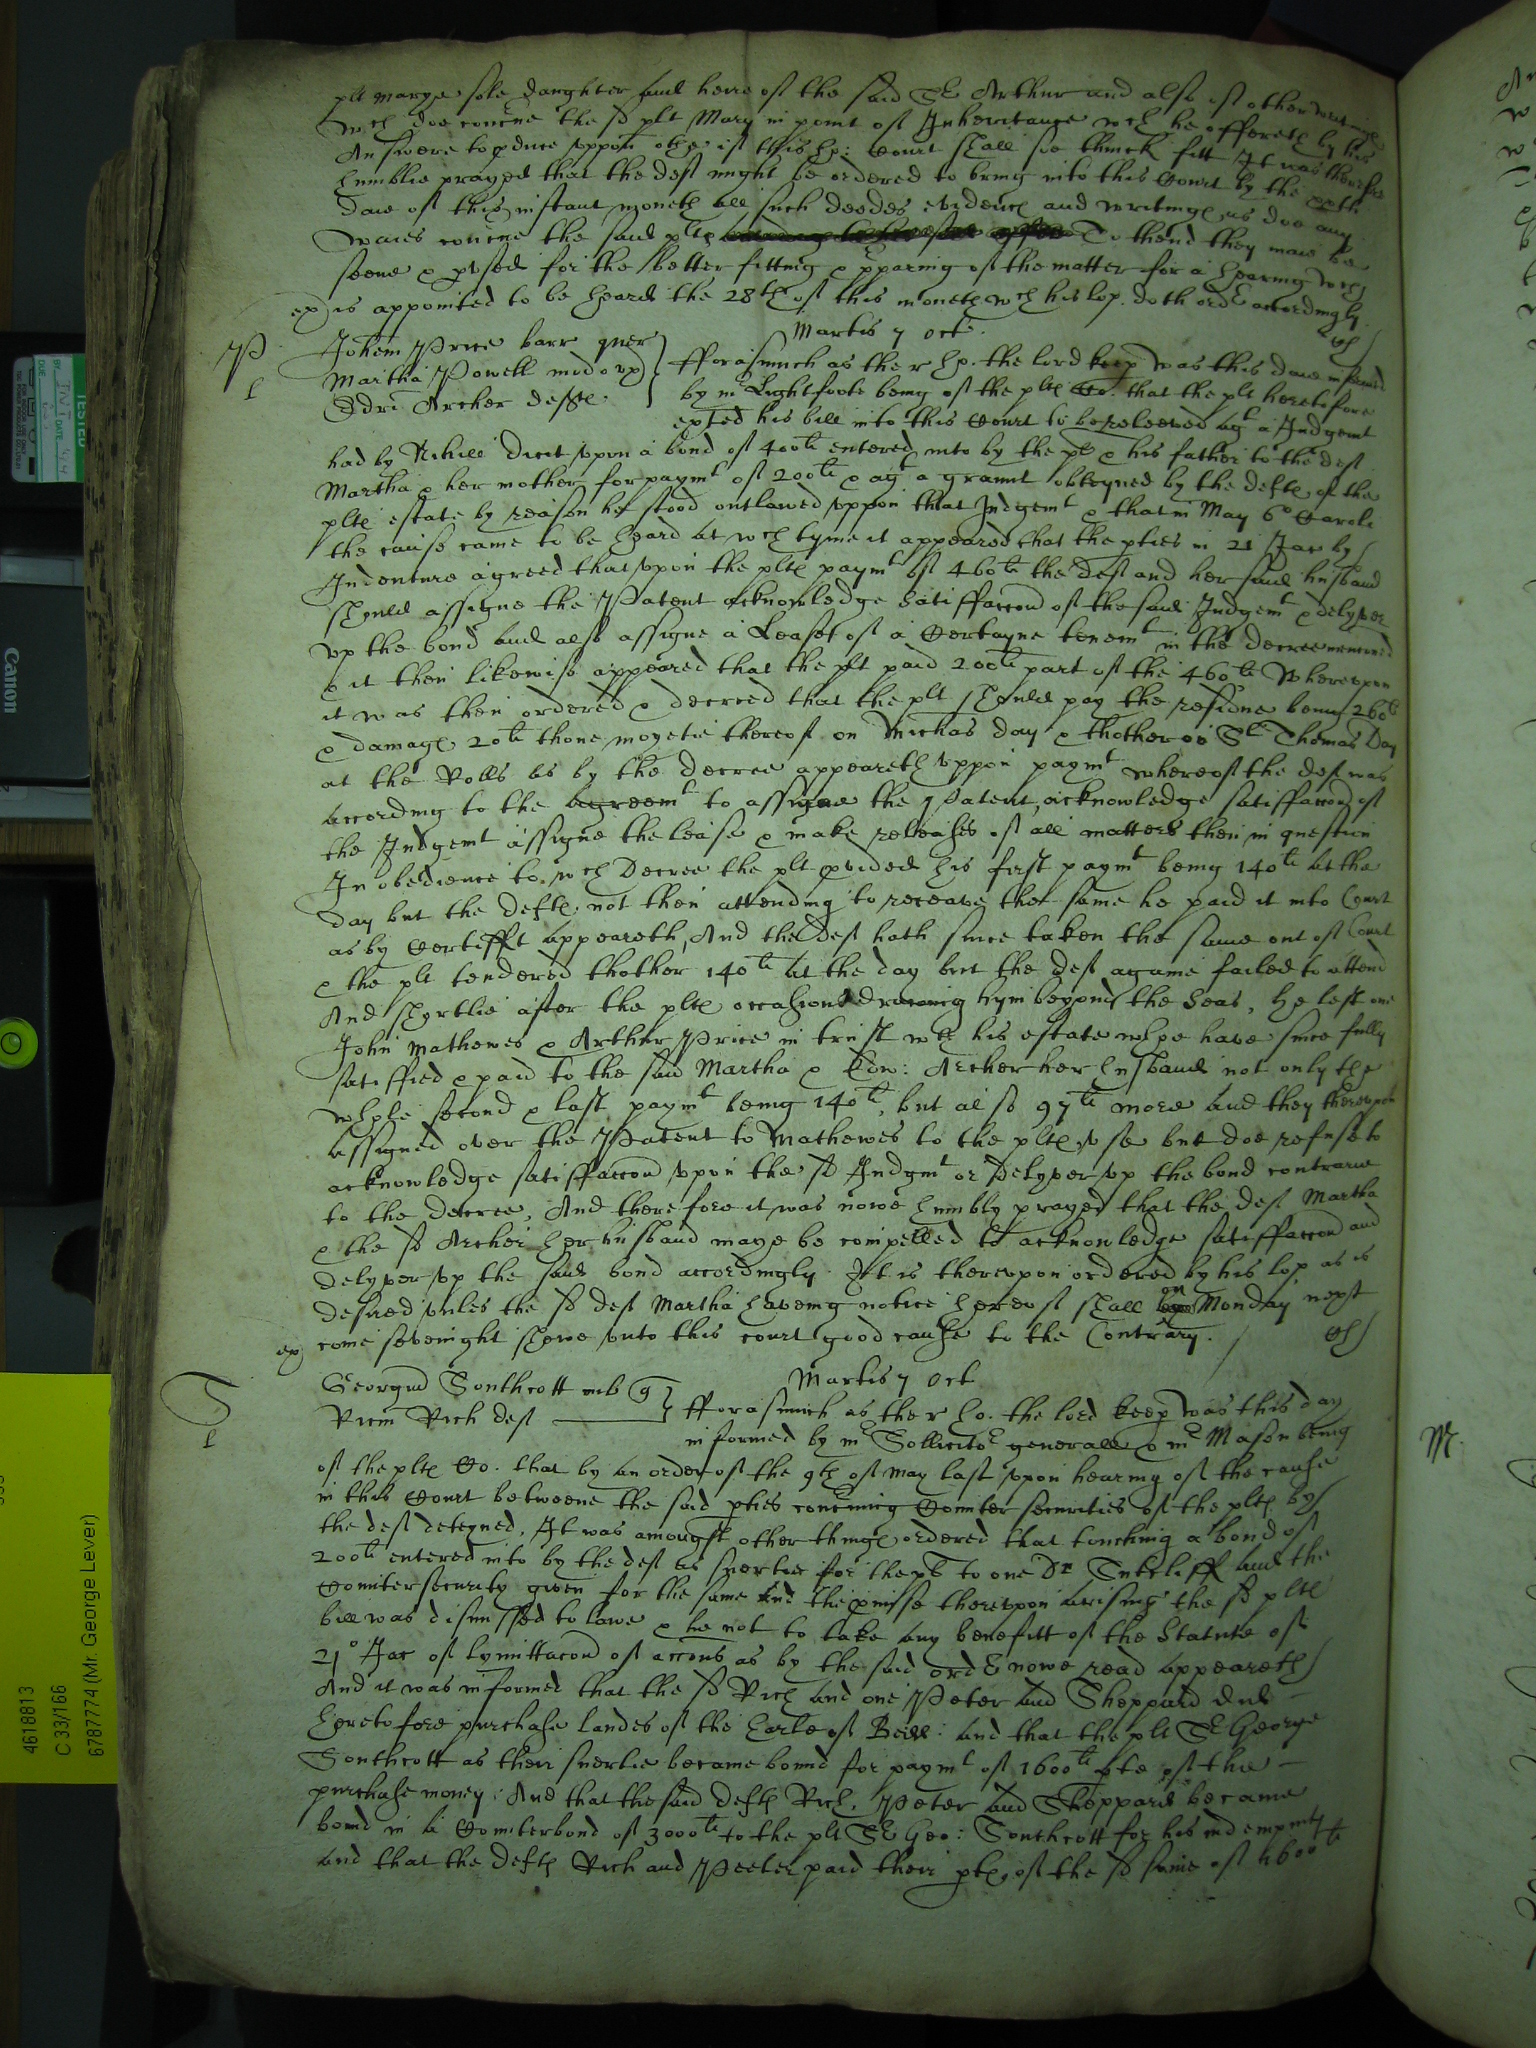 plt Marye sole daughter and heire of the said Sr Arthur and also of other writinge
wch doe concne the sd plt Mary in point of Inheritance wch he offereth by his
Answere to pduce uppon othe if this ho: Court shall soe thinck fitt It was therefore
humblie prayed that the deft might be ordered to bring into this Court by the
daie of this instant moneth all such deedes evidence and writinge as doe any
waies concne the said plte To thend they maie be
seene & pvsed for the better fitting & pparing of the matter for a hearing wch
ex is appointed to be heard the 28th of this moneth wch his lop. doth ordr accordingly
Martis 7 Oct.
P
Johem Price barr quer
Martha Powell mod vx
Edri Archer defte.
fforasmuch as the r ho. the lord keep was this daie informed
by mr Lightfoote being of the plte Co. that the plt heretofore
exted his bill into this Court to be releeved agt a Judgemt
had by Nihill dicit upon a bond of 400li entered into by the pl & his father to the deft
Martha & her mother for paymt of 200li & agt a graunt obteyned by the defte of the
plte estate by reason he stood outlawed uppon that Judgemt & that in May 6o Caroli
the cause came to be heard at wch tyme it appeared that the pties in 21 Jac by
Indenture agreed that upon the plte paymt of 460li the deft and her said husband
should assigne the Patent acknowledge satisfaccon of the said Judgemt & delyver
up the bond and also assigne a Lease of a Certayne tenemt in the decree mencioned
& it then likewise appeared that the plt paid 200li part of the 460li Whereupon
it was then ordered & decreed that the plt should pay the residue being 260li
& damage 20li thone moyetie thereof on Michas day & thother on St Thomas Day
at the Rolls as by the decree appeareth uppon paymt whereof the deft was
according to the agreemt to assigne the Patent, acknowledge satisfaccon of
the Judgemt assigne the lease & make releases of all matters then in question
In obedience to wch Decree the plt pvided his first paymt being 140li at the
day but the defte not then attending to receave the same he paid it into Court
as by Certifft appeareth, And the deft hath since taken the same out of Court
& the plt tendered thother 140li at the day but the deft againe failed to attend
And shortlie after the plte occasions draweing hym beyond the Seas, he left one
John Mathewes & Arthur Price in trust wth his estate whoe have since fully
satisfied & paid to the said Martha & Edw: Archer her husband not only the
whole second & last paymt being 140li, but also 97li more and they thereupon
assigned over the Patent to Mathewes to the plte use but doe refuse to
acknowledge satisfaccon upon the sd Judgmt or delyver up the bond contrarie
to the decree, And therefore it was nowe humbly prayed that the deft Martha
& the sd Archer her husband maye be compelled to acknowledge satisfaccon and
delyver up the said bond accordingly. It is thereupon ordered by his lop as is
desired unles the sd deft Martha haveing notice hereof shall on Monday next
ex come sevenight shewe unto this court good cause to the Contrary.
Martis 7 Oct
S
Georgiu Southcott mil q
Ricm Rich deft
fforasmuch as the r ho. the lord keep was this day
informed by mr Sollicitor generall & mr Mason being
of the plte Co. that by an order of the 9th of May last upon hearing of the cause
in this Court betweene the said pties concning Counter securities of the plte by
the deft deteyned, It was amongst other thinge ordered that touching a bond of
200li entered into by the deft as suertie for the pl to one Dr Sutcliff and the
Countersecurity given for the same and the pmisse thereupon arising the sd plte
bill was dismissed to lawe & he not to take any benefitt of the Statute of
21o Jac of lymittacon of accons as by the said ordr nowe read appeareth
And it was informed that the sd Rich and one Peter and Sheppard did
heretofore purchase landes of the Earle of And that the plt Sr George
Southcott as their suertie became bound for paymt of 1600li pte of the
purchase money; And that the said defte Rich, Peter and Sheppard became
bound in a Counterbond of 3000li to the plt Sr Geo: Southcott for his indempnity
and that the defte Rich and Peeter paid their pte of the sd sume of 1600li
M.
TESTED
BY
INIT
DATE
DUE
Canon
4618813
C 33/166
6787774 (Mr. George Lever)